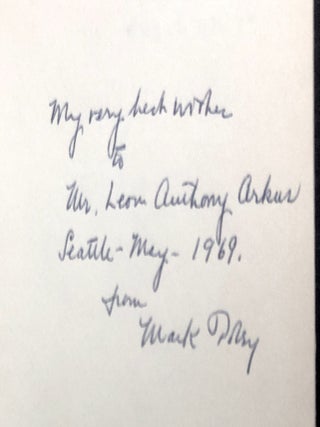 My very best wishes
to
Mr. Leon Anthony Arkus
Seattle - May - 1969.
from
Mark Tobey